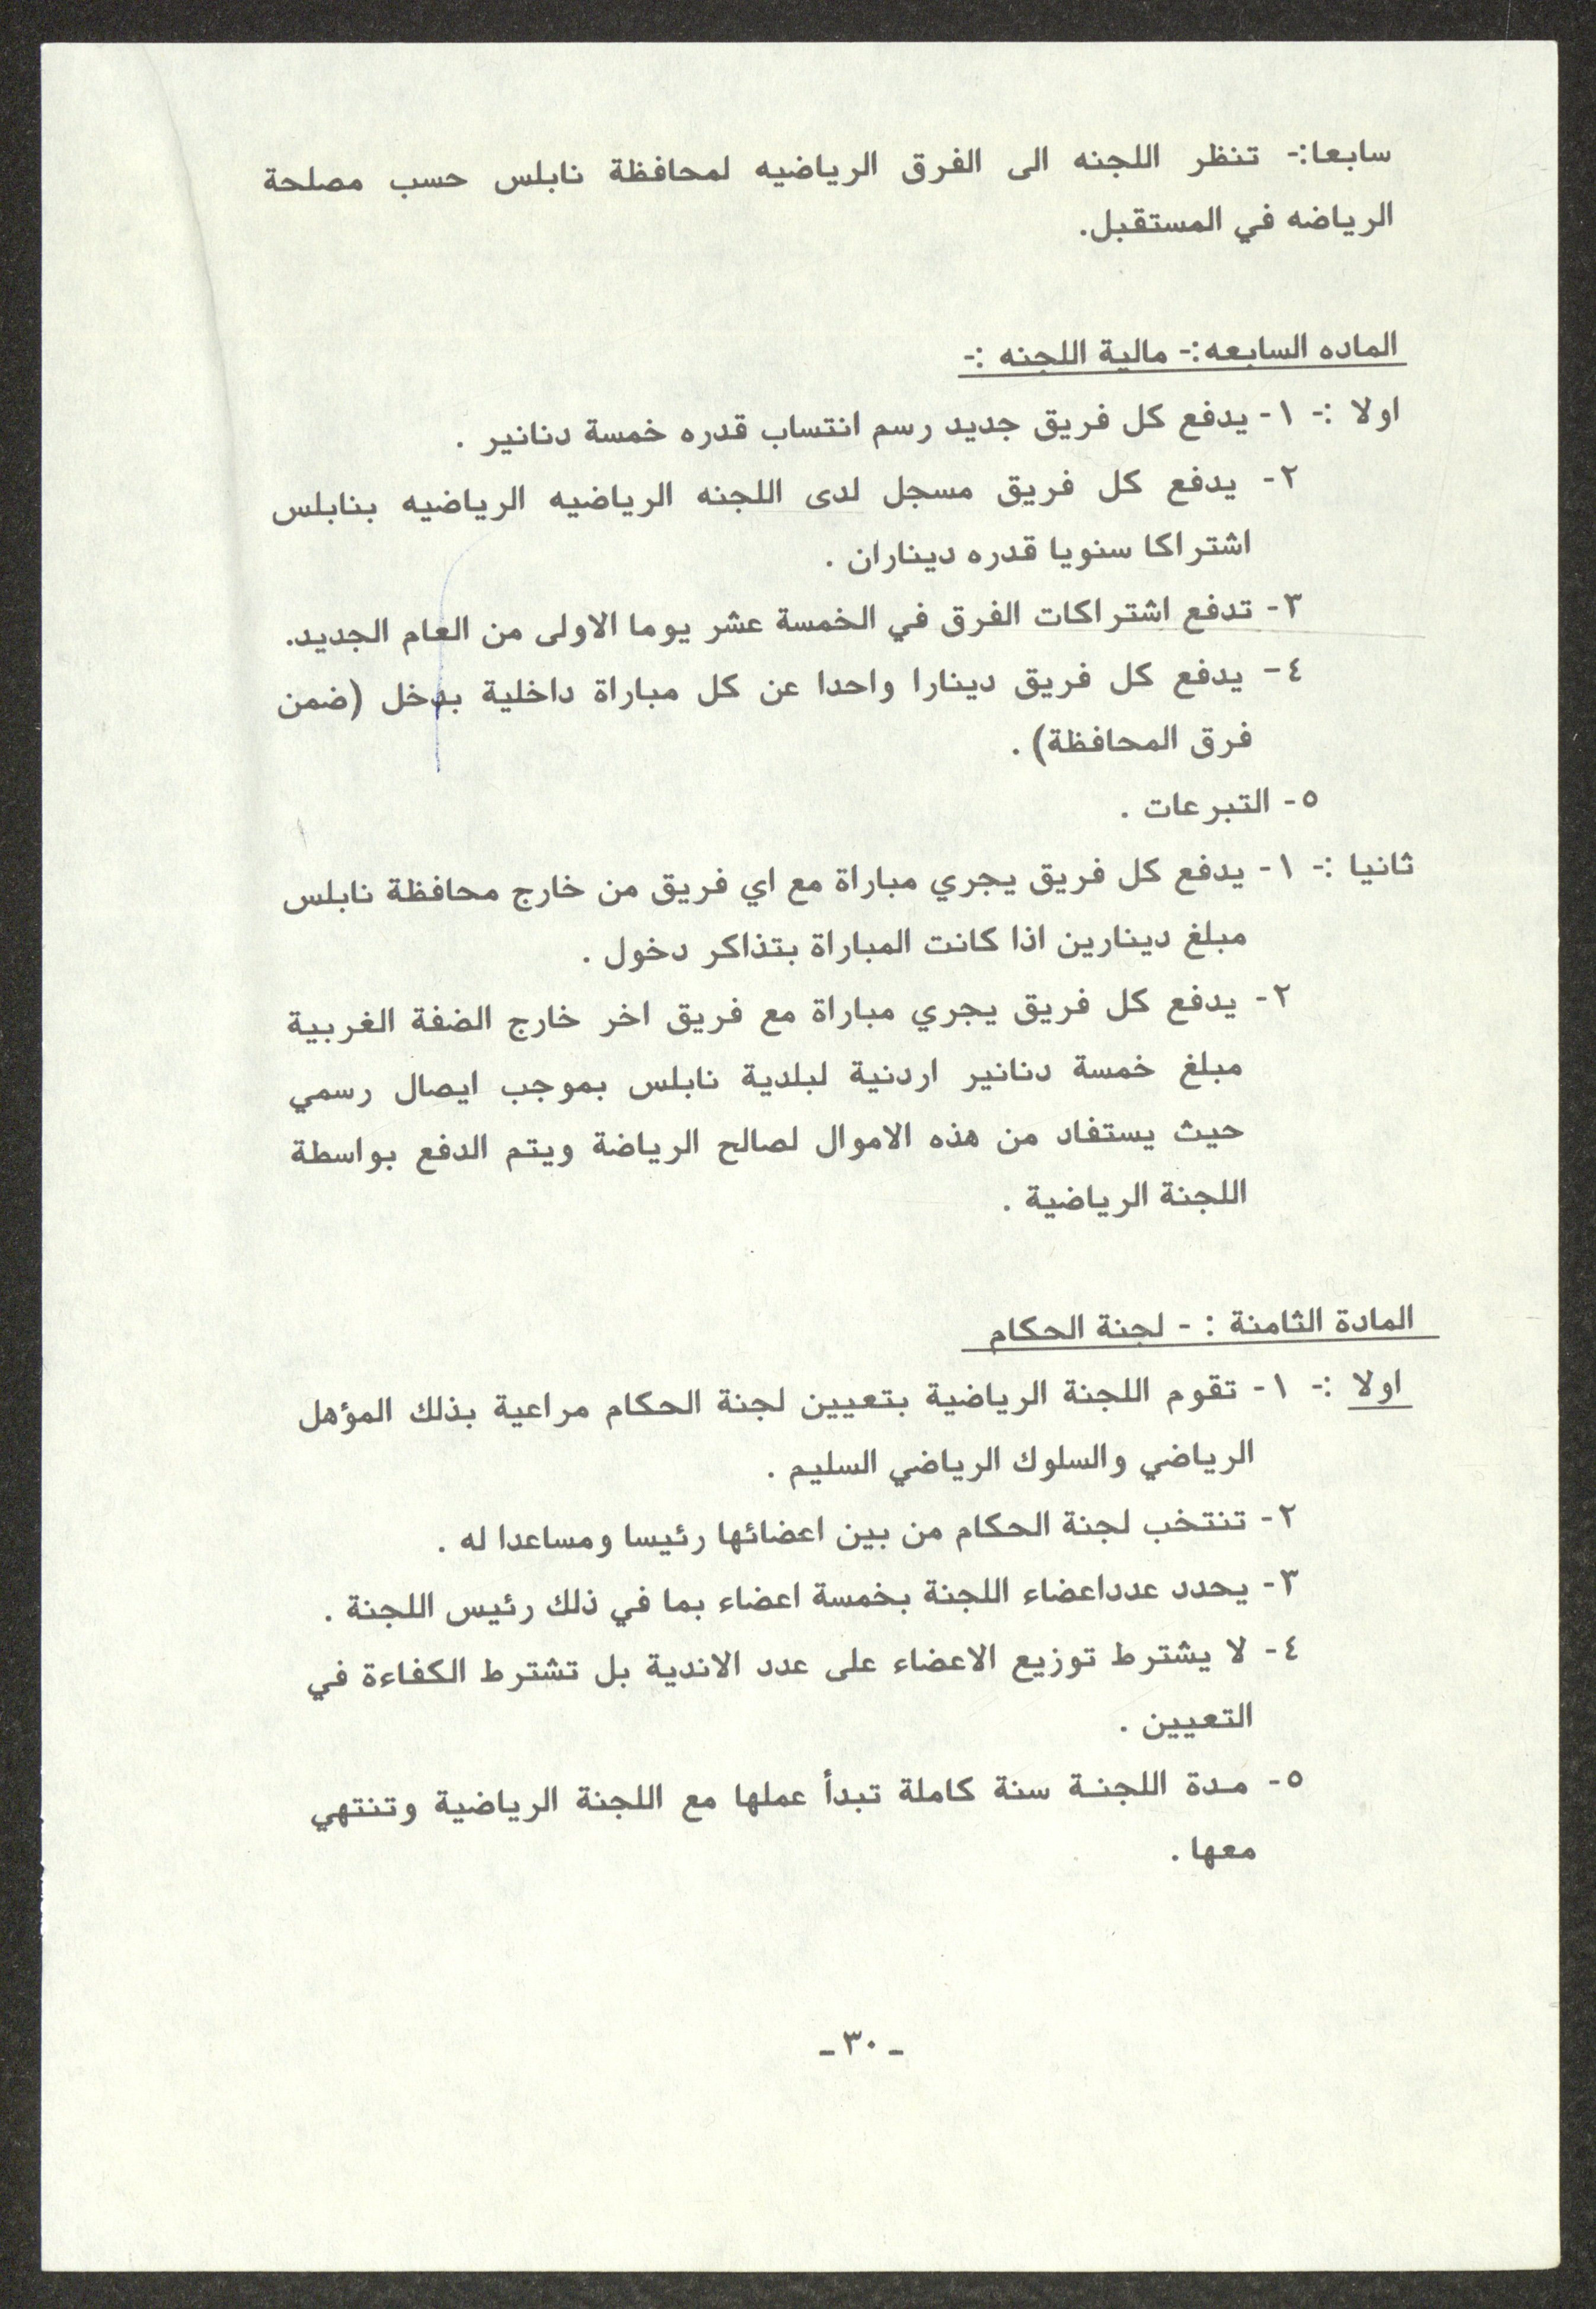 سابعا:- تنظر اللجنه الى الفرق الرياضيه لمحافظة نابلس حسب مصلحة
الرياضه في المستقبل.
الماده السابعه:- مالية اللجنه :-
اولا :- ١- يدفع كل فريق جديد رسم انتساب قدره خمسة دنانير .
٢- يدفع كل فريق مسجل لدى اللجنه الرياضيه الرياضيه بنابلس
اشتراكا سنويا قدره ديناران .
٣- تدفع اشتراكات الفرق في الخمسة عشر يوما الاولى من العام الجديد.
٤- يدفع كل فريق دينارا واحدا عن كل مباراة داخلية بدخل (ضمن
فرق المحافظة) .
٥- التبرعات .
ثانيا :- ١- يدفع كل فريق يجري مباراة مع اي فريق من خارج محافظة نابلس
مبلغ دينارين اذا كانت المباراة بتذاكر دخول .
٢- يدفع كل فريق يجري مباراة مع فريق اخر خارج الضفة الغربية
مبلغ خمسة دنانير اردنية لبلدية نابلس بموجب ايصال رسمي
حيث يستفاد من هذه الاموال لصالح الرياضة ويتم الدفع بواسطة
اللجنة الرياضية .
المادة الثامنة : - لجنة الحكام
اولا :- ١- تقوم اللجنة الرياضية بتعيين لجنة الحكام مراعية بذلك المؤهل
الرياضي والسلوك الرياضي السليم .
٢- تنتخب لجنة الحكام من بين اعضائها رئيسا ومساعدا له .
٣- يحدد عدداعضاء اللجنة بخمسة اعضاء بما في ذلك رئيس اللجنة .
٤- لا يشترط توزيع الاعضاء على عدد الاندية بل تشترط الكفاءة في
التعيين .
٥- مـدة اللجنـة سنة كاملة تبدأ عملها مع اللجنة الرياضية وتنتهي
معها .
ـ ٣٠ ـ